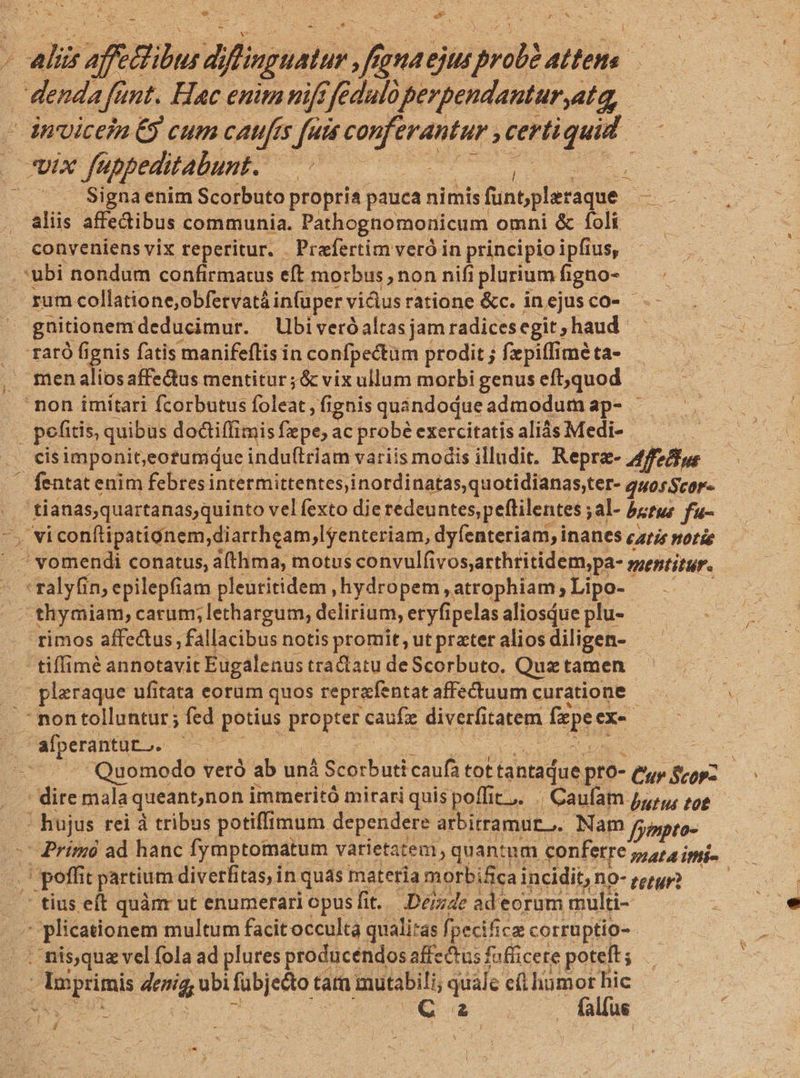 aliis affectibus diſtinguatur, ſigna ejus probè atten⸗
denda ſunt. Hac enim niſi ſedulò perpendantur, atq,
invicem & cum cauſis ſuis conferantur, certi quid
vix ſuppeditabunt.
Signa enim Scorbuto propria pauca nimis ſunt, plæraque
aliis affectibus communia. Pathognomonicum omni & ſoli
conveniens vix reperitur. Præſertim verò in principio ipſius,
ubi nondum confirmatus eſt morbus, non niſi plurium ſigno-
rum collatione, obſervatâ inſuper victus ratione &c. in ejus co-
gnitionem deducimur. Ubi verò altas jam radices egit, haud
rarò ſignis ſatis manifeſtis in conſpectum prodit; ſæpiſſimè ta-
men alios affectus mentitur; & vix ullum morbi genus eſt, quod
non imitari ſcorbutus ſoleat, ſignis quandoque admodum ap-
poſitis, quibus doctiſſimis ſæpe, ac probè exercitatis aliàs Medi-
cis imponit, eorumque induſtriam variis modis illudit. Repræ- Affectus
ſentat enim febres intermittentes, inordinatas, quotidianas, ter- quos Scor-
tianas, quartanas, quinto vel ſexto die redeuntes, peſtilentes; al- butus fu-
vi conſtipationem, diarrhœam, lyenteriam, dyſenteriam, inanes catis notis
vomendi conatus, aſthma, motus convulſivos, arthritidem, pa- mentitur.
ralyſin, epilepſiam pleuritidem, hydropem, atrophiam, Lipo-
thymiam, carum, lethargum, delirium, eryſipelas aliosque plu-
rimos affectus, fallacibus notis promit, ut præter alios diligen-
tiſſimè annotavit Eugalenus tractatu de Scorbuto. Quæ tamen
plæraque uſitata eorum quos repræſentat affectuum curatione
non tolluntur; ſed potius propter cauſæ diverſitatem ſæpe ex-
aſperantur.
Quomodo verò ab unâ Scorbuti cauſâ tot tantaque pro- Cur Scor-
dire mala queant, non immeritò mirari quis poſſit. Cauſam butus tot
hujus rei à tribus potiſſimum dependere arbitramur. Nam ſympto-
Primò ad hanc ſymptomatum varietatem, quantum conferre mata imi-
poſſit partium diverſitas, in quas materia morbifica incidit, no- tetur?
tius eſt quàm ut enumerari opus ſit. Deinde ad eorum multi-
plicationem multum facit occulta qualitas ſpecificæ corruptio-
nis, quæ vel ſola ad plures producendos affectus ſufficere poteſt;
Imprimis deniq, ubi ſubjecto tam mutabili, quale eſt humor hic
C 2 ſalſus